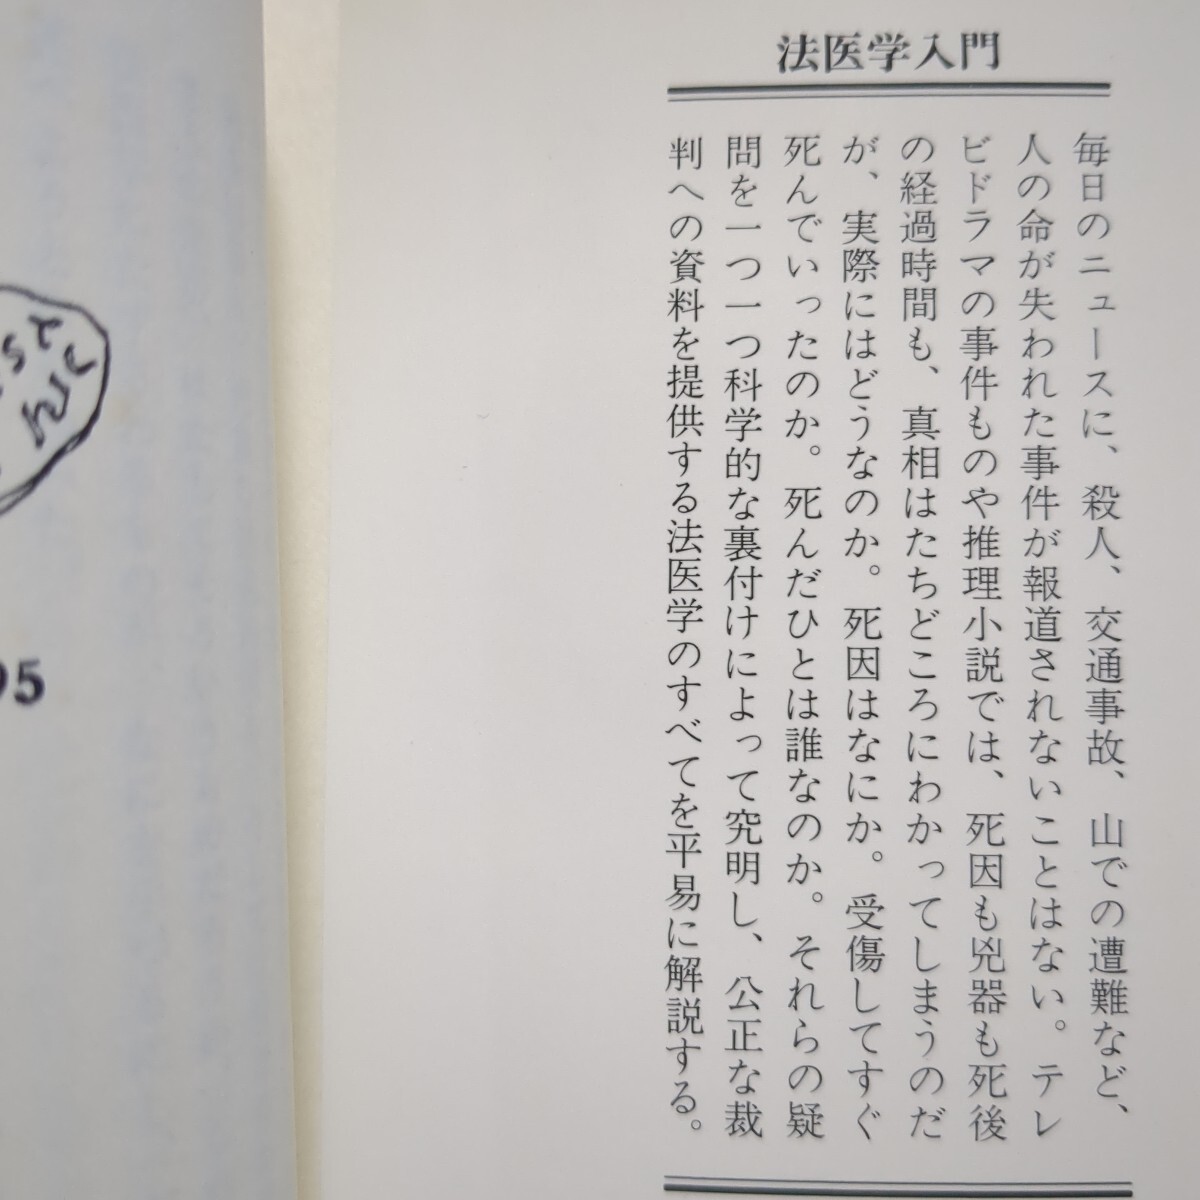 法医学入門
毎日のニュースに、殺人、交通事故、山での遭難など、
人の命が失われた事件が報道されないことはない。テレ
ビドラマの事件ものや推理小説では、死因も兇器も死後
の経過時間も、真相はたちどころにわかってしまうのだ
が、実際にはどうなのか。死因はなにか。受傷してすぐ
死んでいったのか。死んだひとは誰なのか。それらの疑
問を一つ一つ科学的な裏付けによって究明し、公正な裁
判への資料を提供する法医学のすべてを平易に解説する。
95